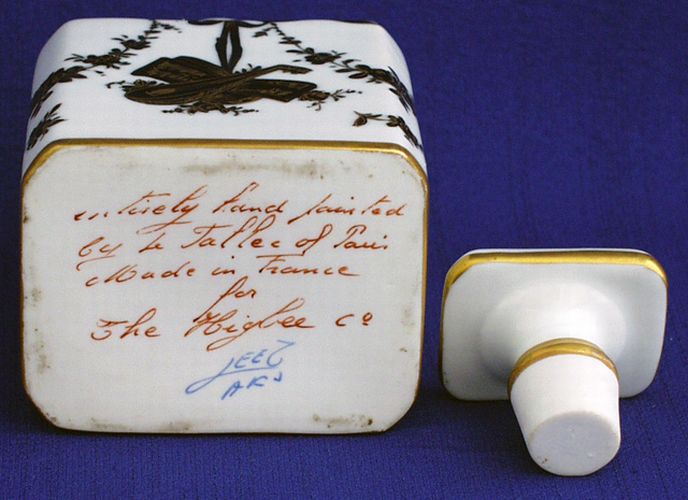 entirely hand painted
by Le Tallec of Paris
Made in France
for
The Higbee Co